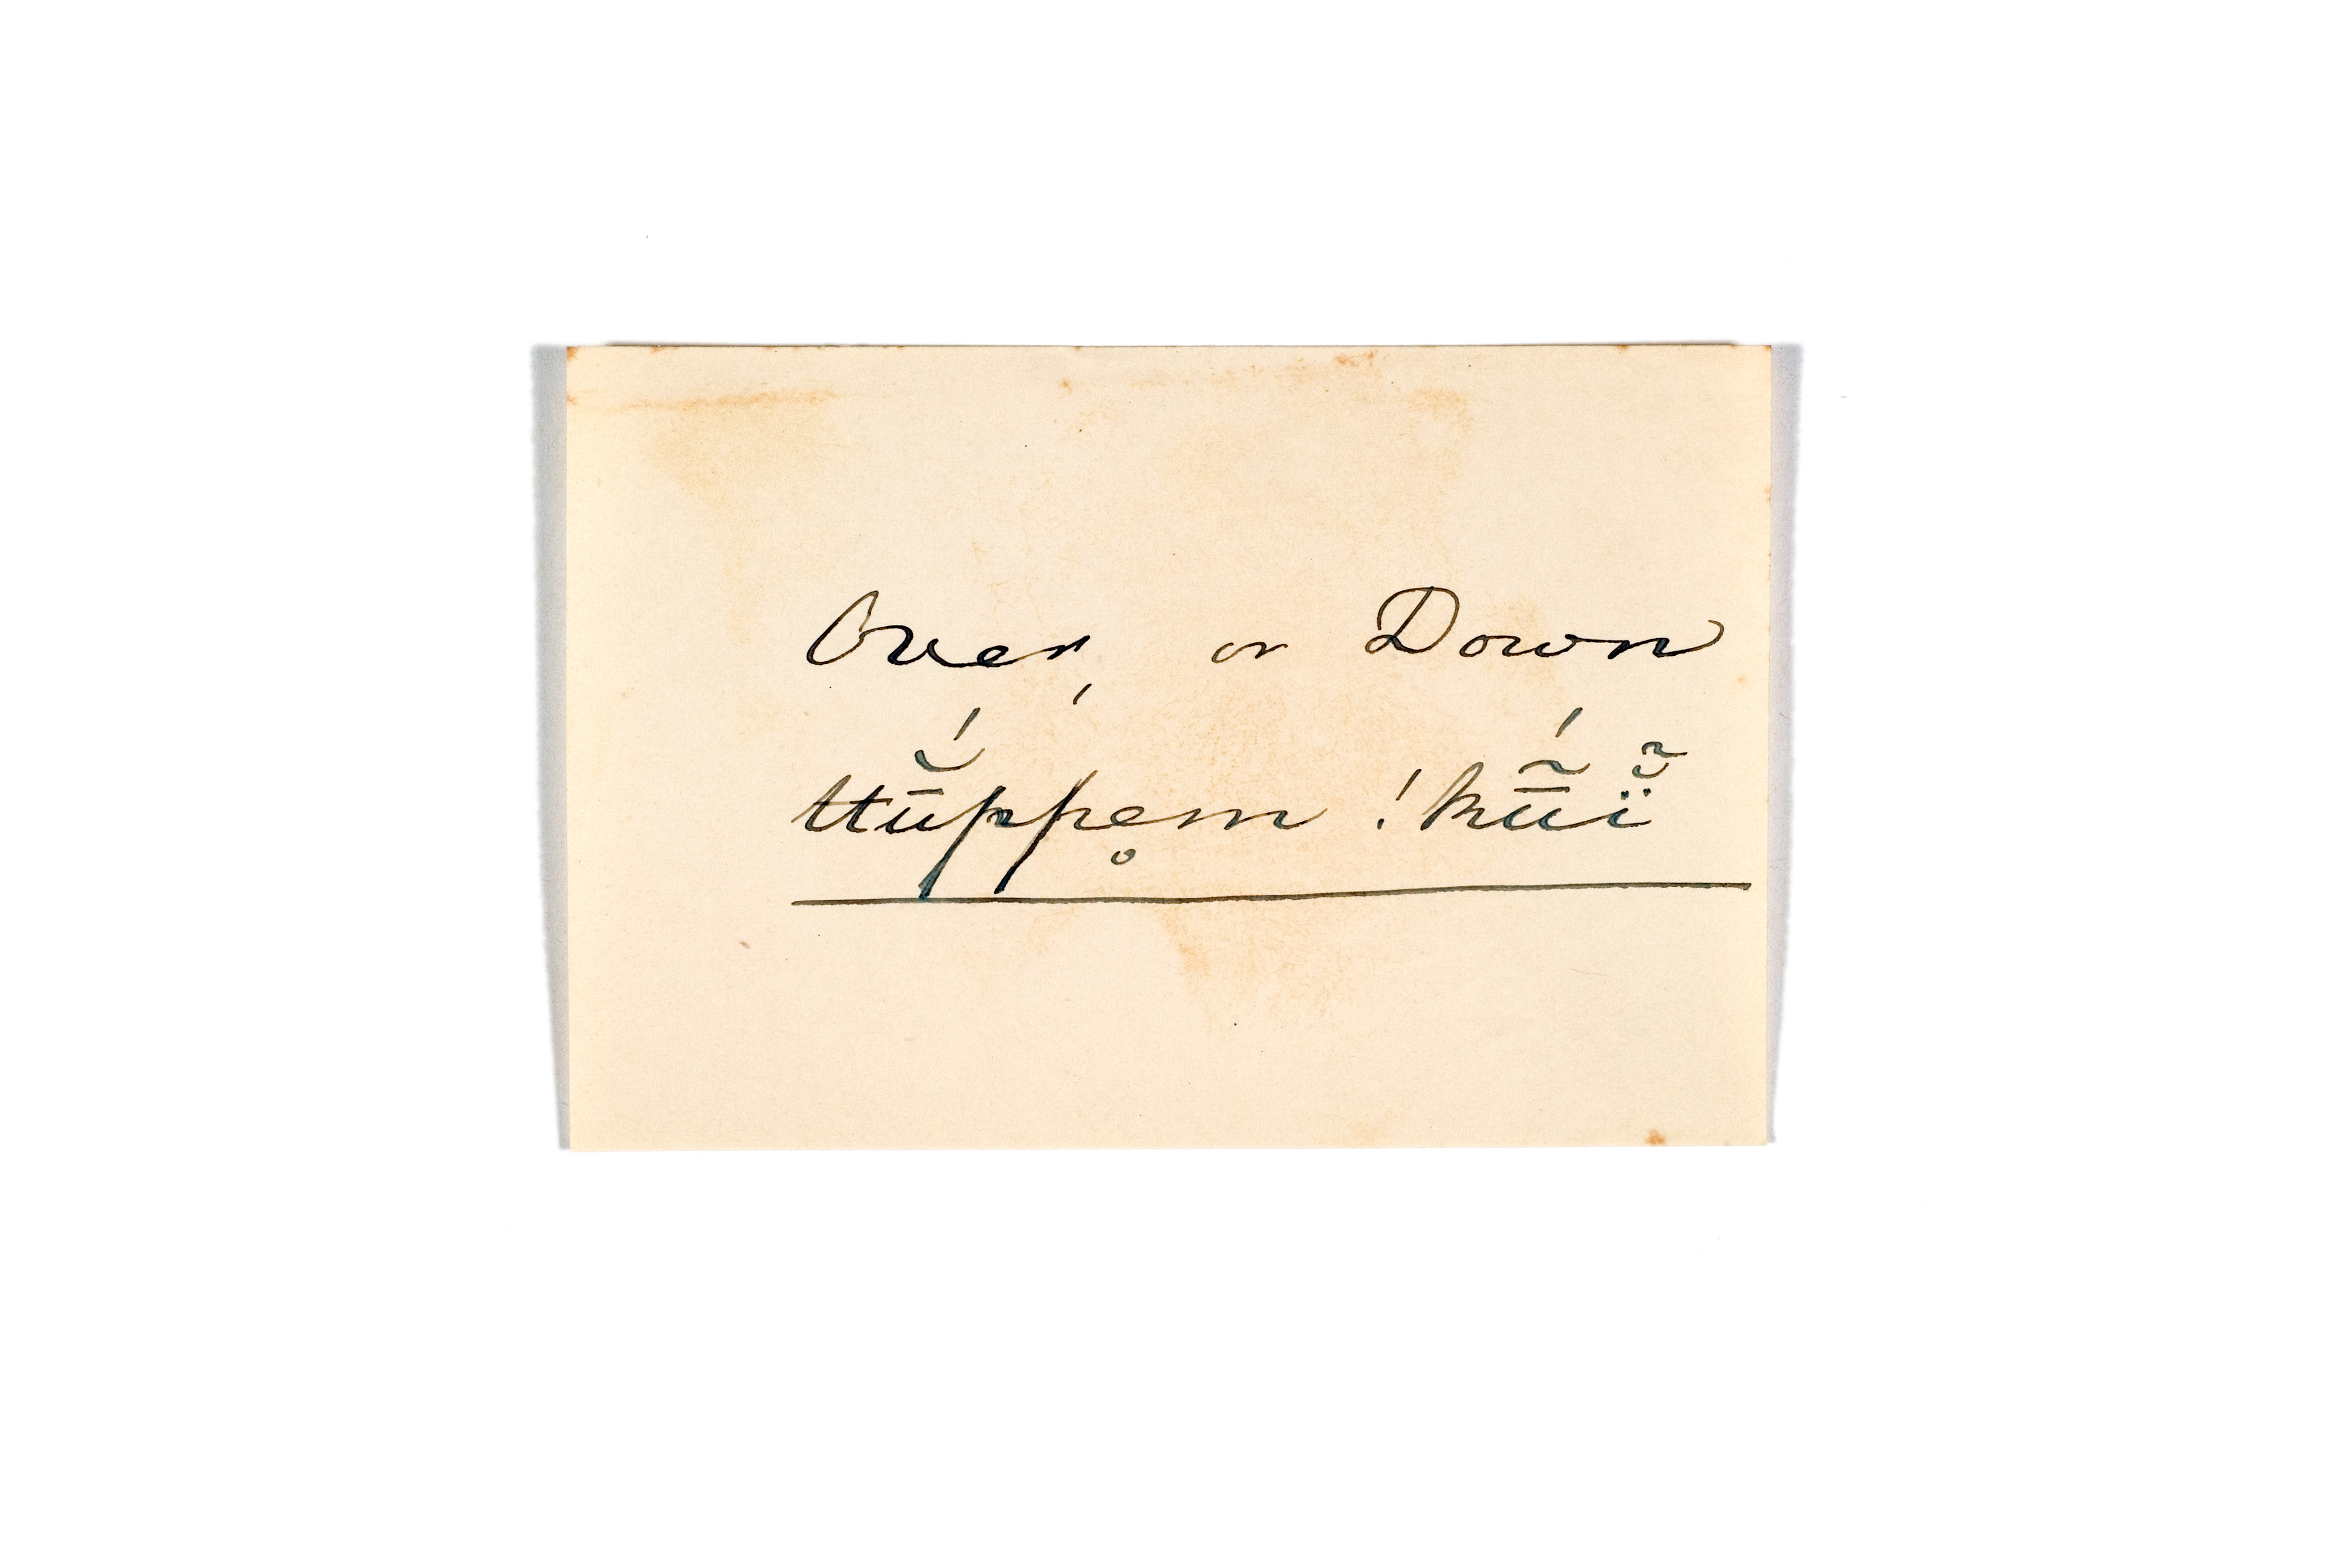 Over, or Down
ttū̆́ppe̥m !kū̃́ï̆̃